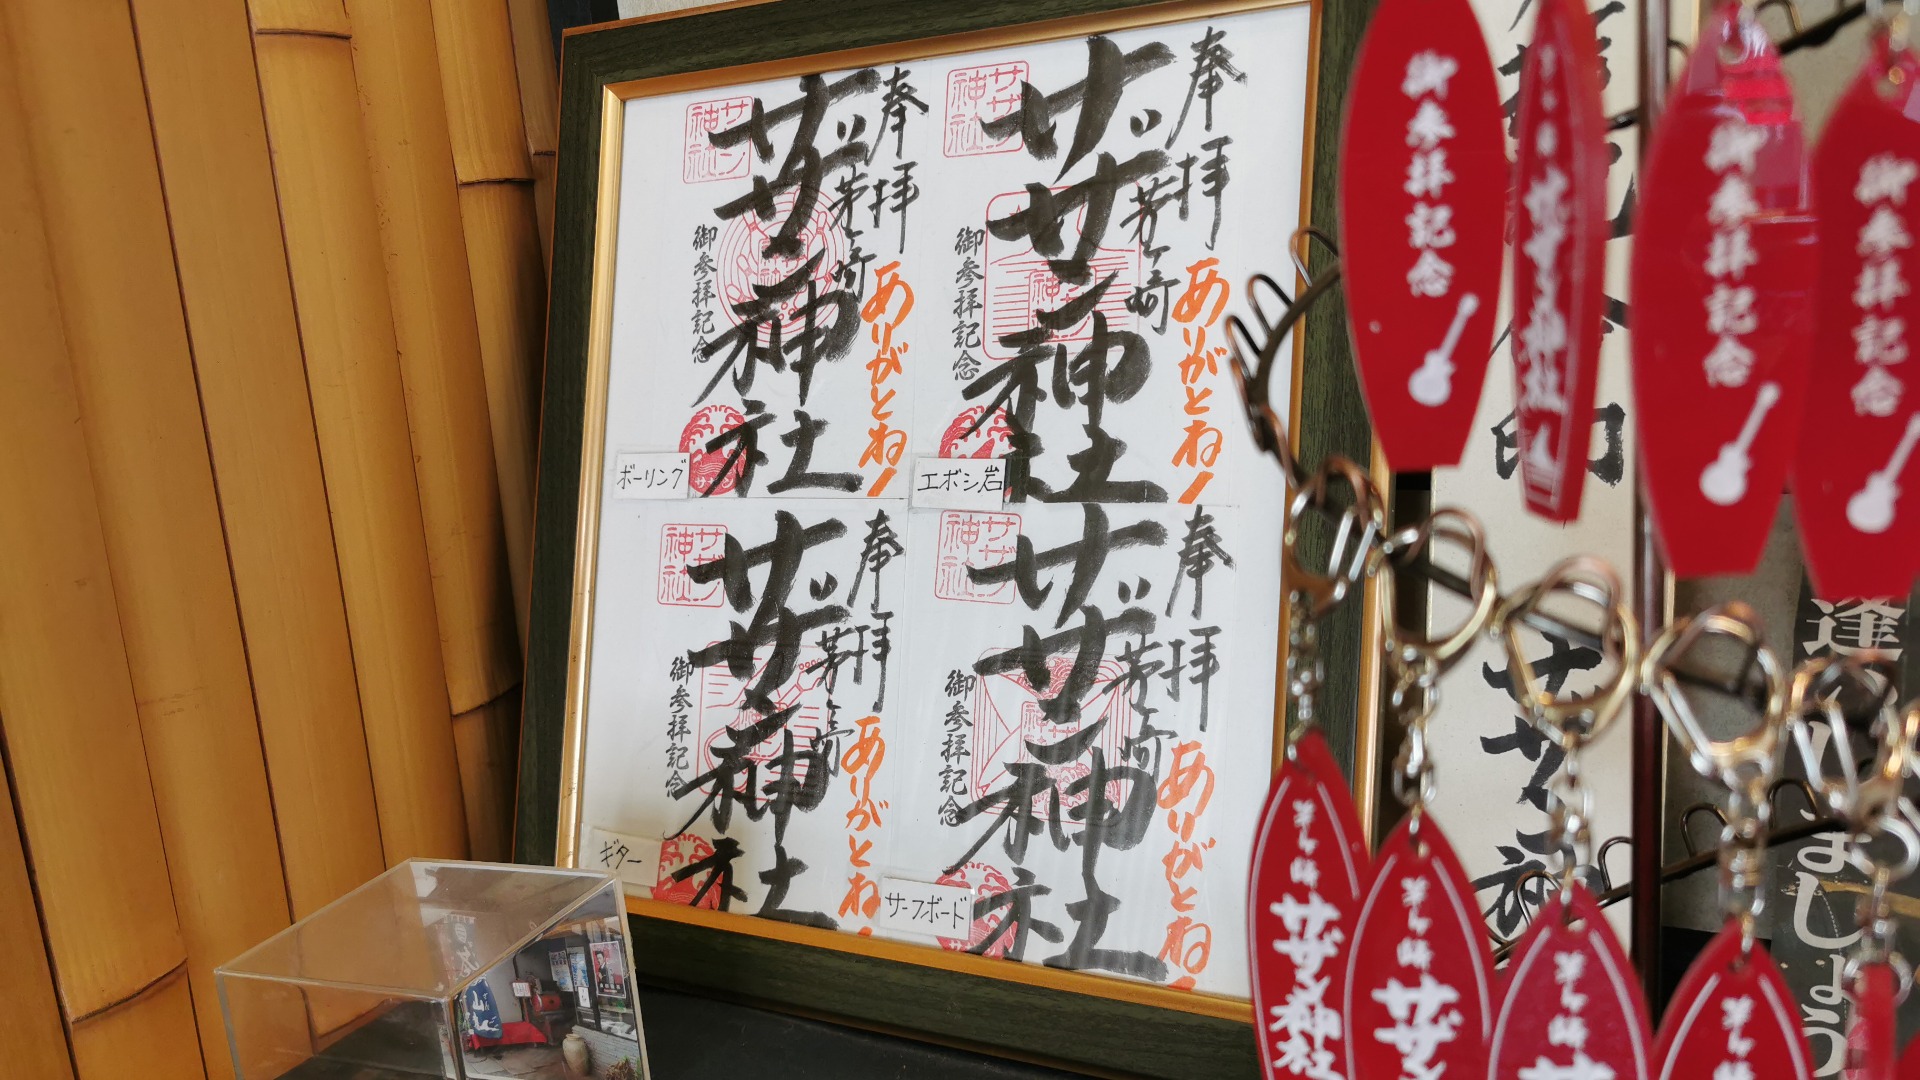 奉拝
茅ヶ崎
サザン神社
サザン神社
御参拝記念
ありがとね!
ボーリング
奉拝
茅ヶ崎
サザン神社
サザン神社
御参拝記念
ありがとね!
エボシ岩
奉拝
茅ヶ崎
サザン神社
サザン神社
御参拝記念
ありがとね!
ギター
奉拝
茅ヶ崎
サザン神社
サザン神社
御参拝記念
ありがとね!
サーフボード
御参拝記念
サザン神社
御参拝記念
御参拝記念
茅ヶ崎
サザン神社
茅ヶ崎
サザン
茅ヶ崎
茅ヶ崎
逢い
ましょう